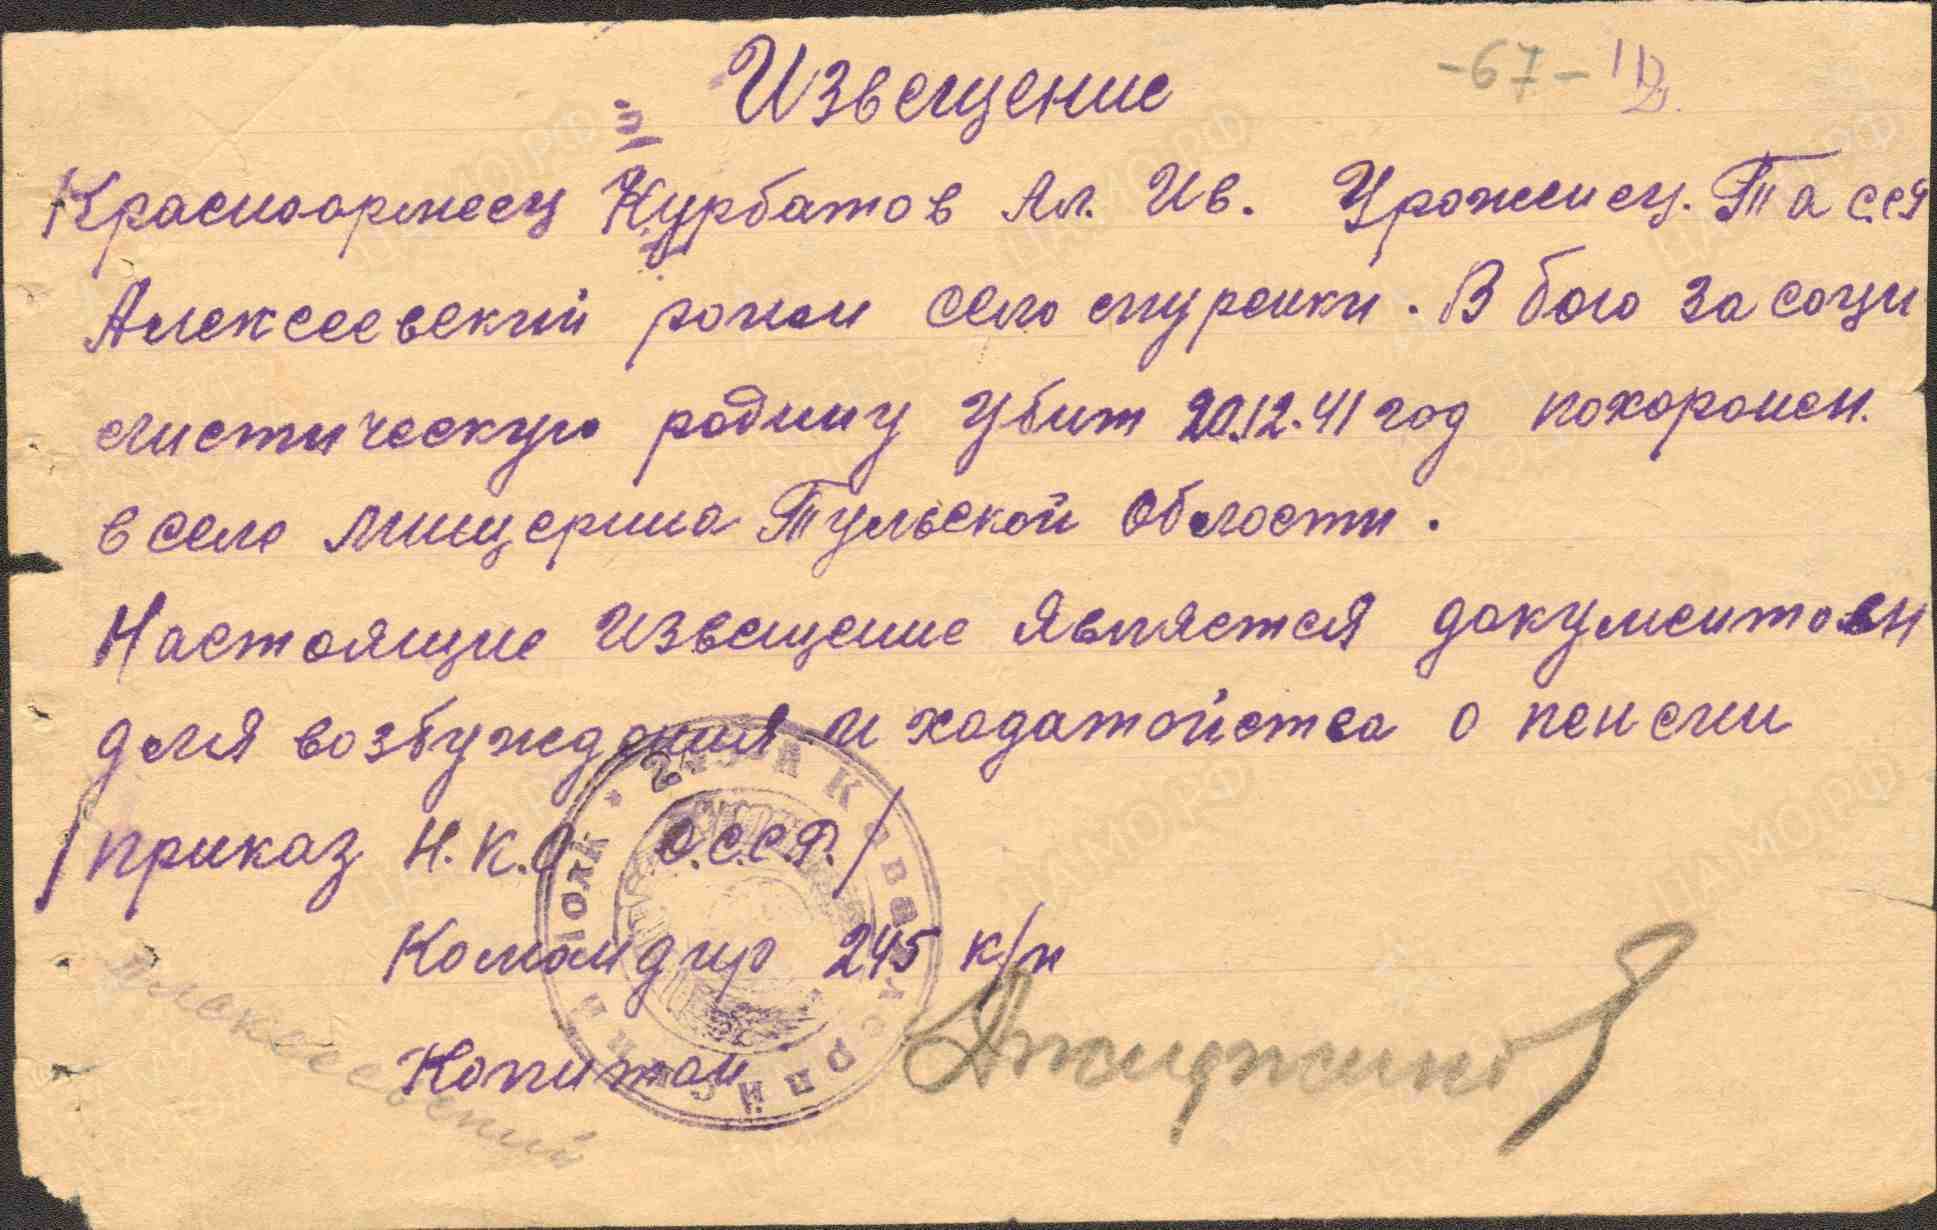 Извещение
-67-
Красноармеец Курбатов Ал. Ив. Урожинец. Та ССР
Алексеевский район село
В бою за соци
листическую родину убит 20.12.41 год похоронен.
в селе Мищерина Тульской Области.
Настоящие извещение является документовм
для возбуждения и ходатойства о пенсии
/приказ Н.К.О С.С.С.Р./
Командир 245 к/п
Копитан
Алексеевский